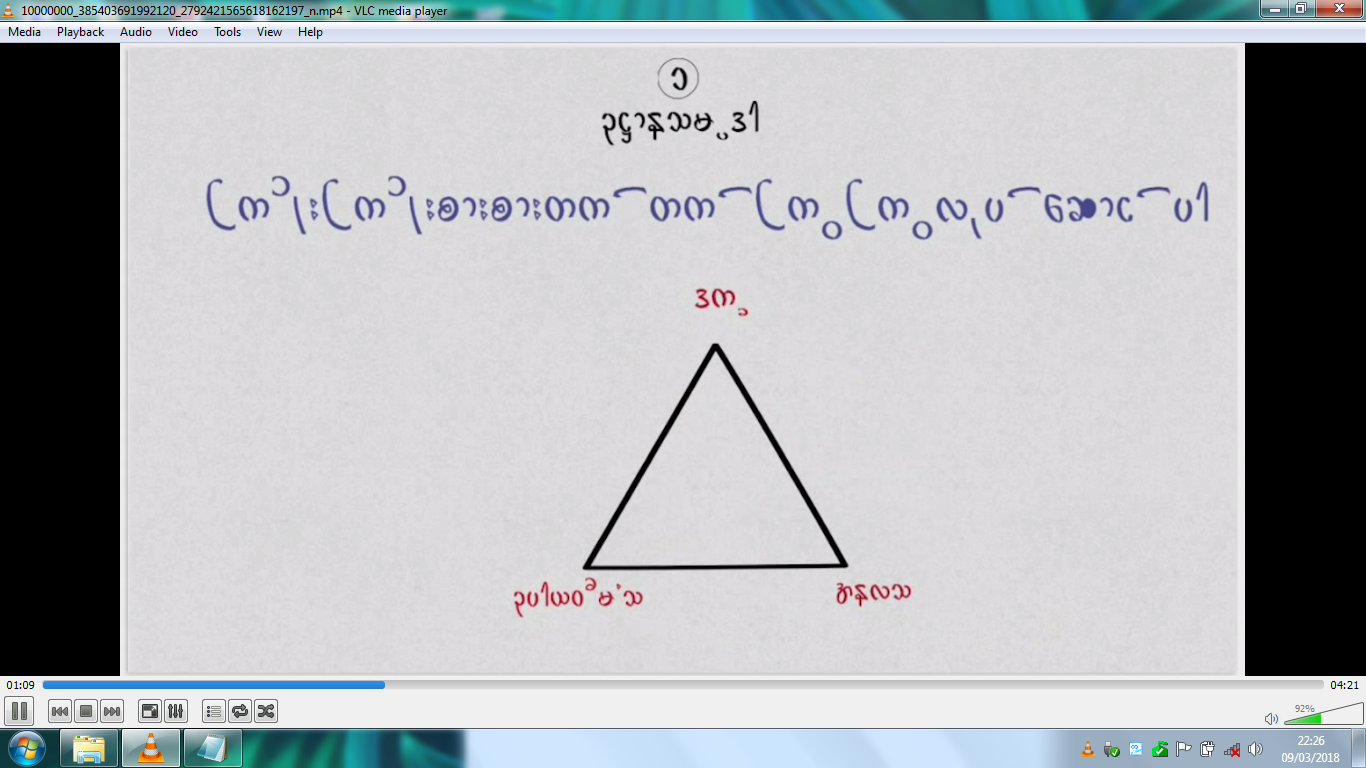 10000000_385403691992120_2792421565618162197_n.mp4 - VLC media player
Media Playback Audio Video Tools View Help
၁
ဥဋ္ဌာနသမ္ပဒါ
ကြိုးကြိုးစားစားတက်တက်ကြွကြွလုပ်ဆောင်ပါ
ဒက္ခ
ဥပါယဝီမံသ
အနလသ
01:09
04:21
92%
22:26
09/03/2018